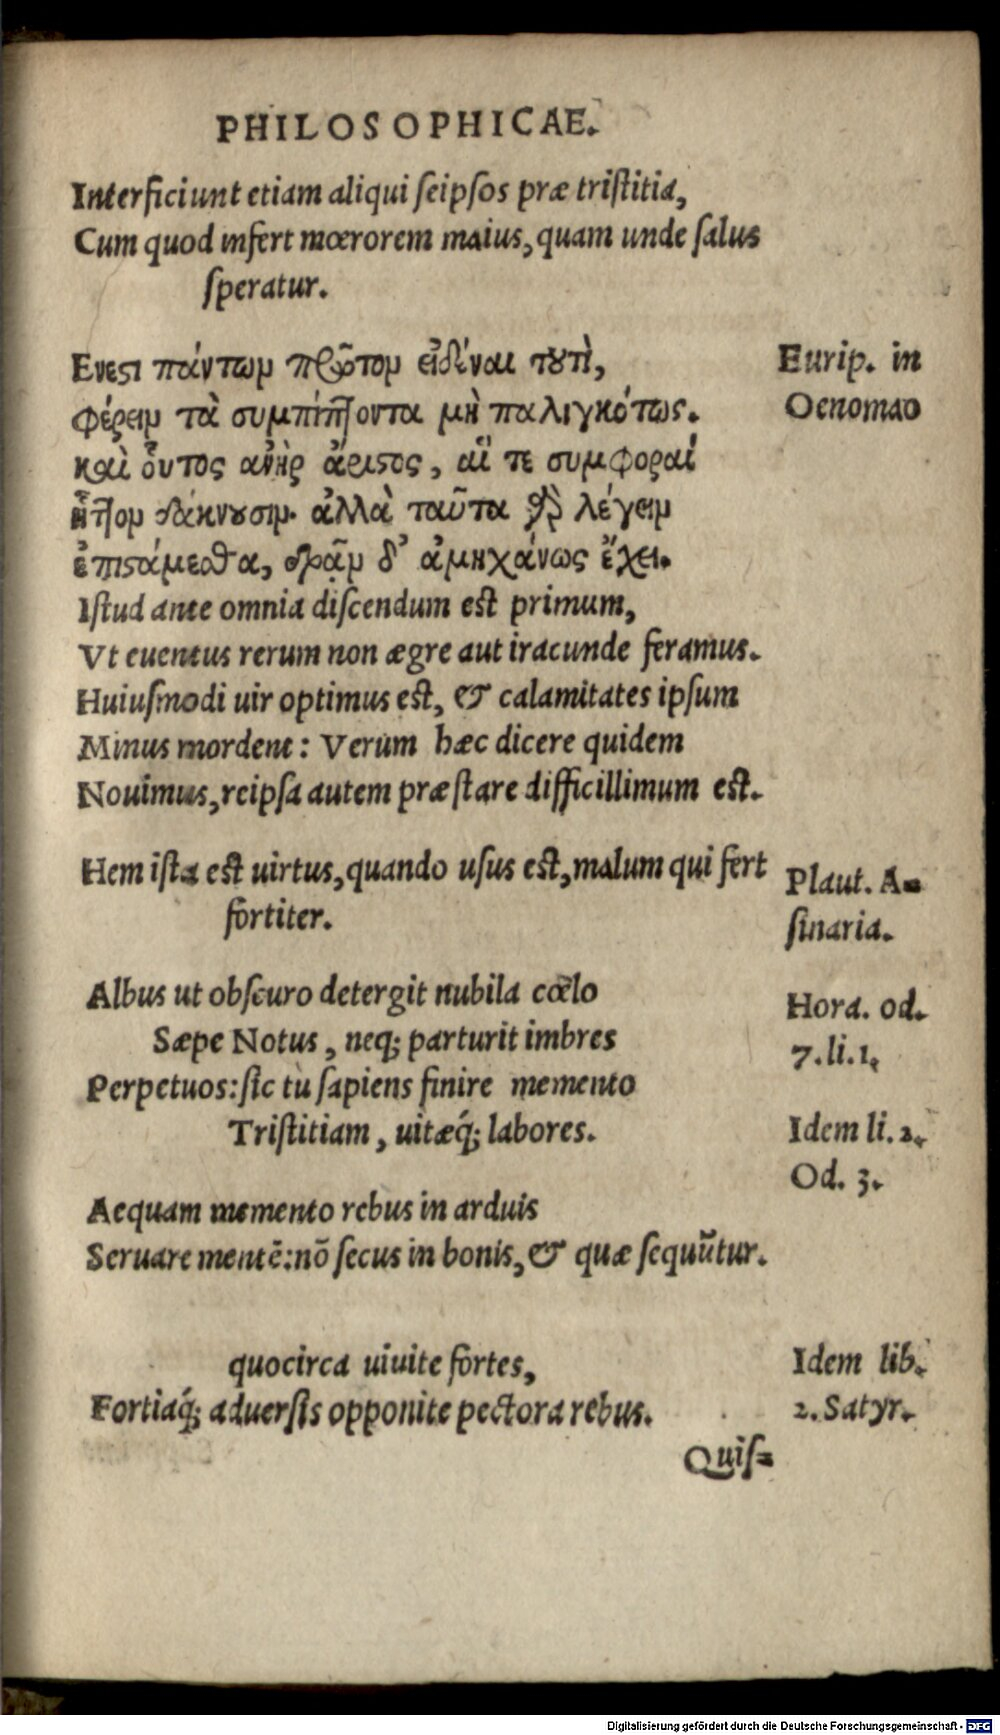 PHILOSOPHICAE.
Interficiunt etiam aliqui ſeipſos præ triſtitia,
Cum quod infert mœrorem maius, quam unde ſalus
ſperatur.
Ενεϛι πάντων πρῶτον εἰδέναι τουτὶ,
φέρειν τὰ συμπίπτοντα μὴ παλιγκότως.
καὶ οὗτος ἀνὴρ ἄριϛος, αἵ τε συμφοραί
ἧττον δάκνουσιν. ἀλλὰ ταῦτα γὰρ λέγειν
ἐπιϛάμεσθα, δρᾷν δ' ἀμηχάνως ἔχει.
Eurip. in
Oenomao
Iſtud ante omnia diſcendum eſt primum,
Vt euentus rerum non ægre aut iracunde feramus.
Huiuſmodi uir optimus eſt, & calamitates ipſum
Minus mordent: Verum hæc dicere quidem
Nouimus, reipſa autem præſtare difficillimum eſt.
Hem iſta eſt uirtus, quando uſus eſt, malum qui fert
fortiter.
Plaut. A-
ſinaria.
Albus ut obſcuro detergit nubila cœlo
Sæpe Notus, neq; parturit imbres
Perpetuos: ſic tu ſapiens finire memento
Triſtitiam, uitæq́; labores.
Hora. od.
7. li. 1.
Aequam memento rebus in arduis
Seruare mentē: nō ſecus in bonis, & quæ ſequūtur.
Idem li. 2.
Od. 3.
quocirca uiuite fortes,
Fortiaq́; aduerſis opponite pectora rebus.
Idem lib.
2. Satyr.
Quiſ-
Digitalisierung gefördert durch die Deutsche Forschungsgemeinschaft - DFG